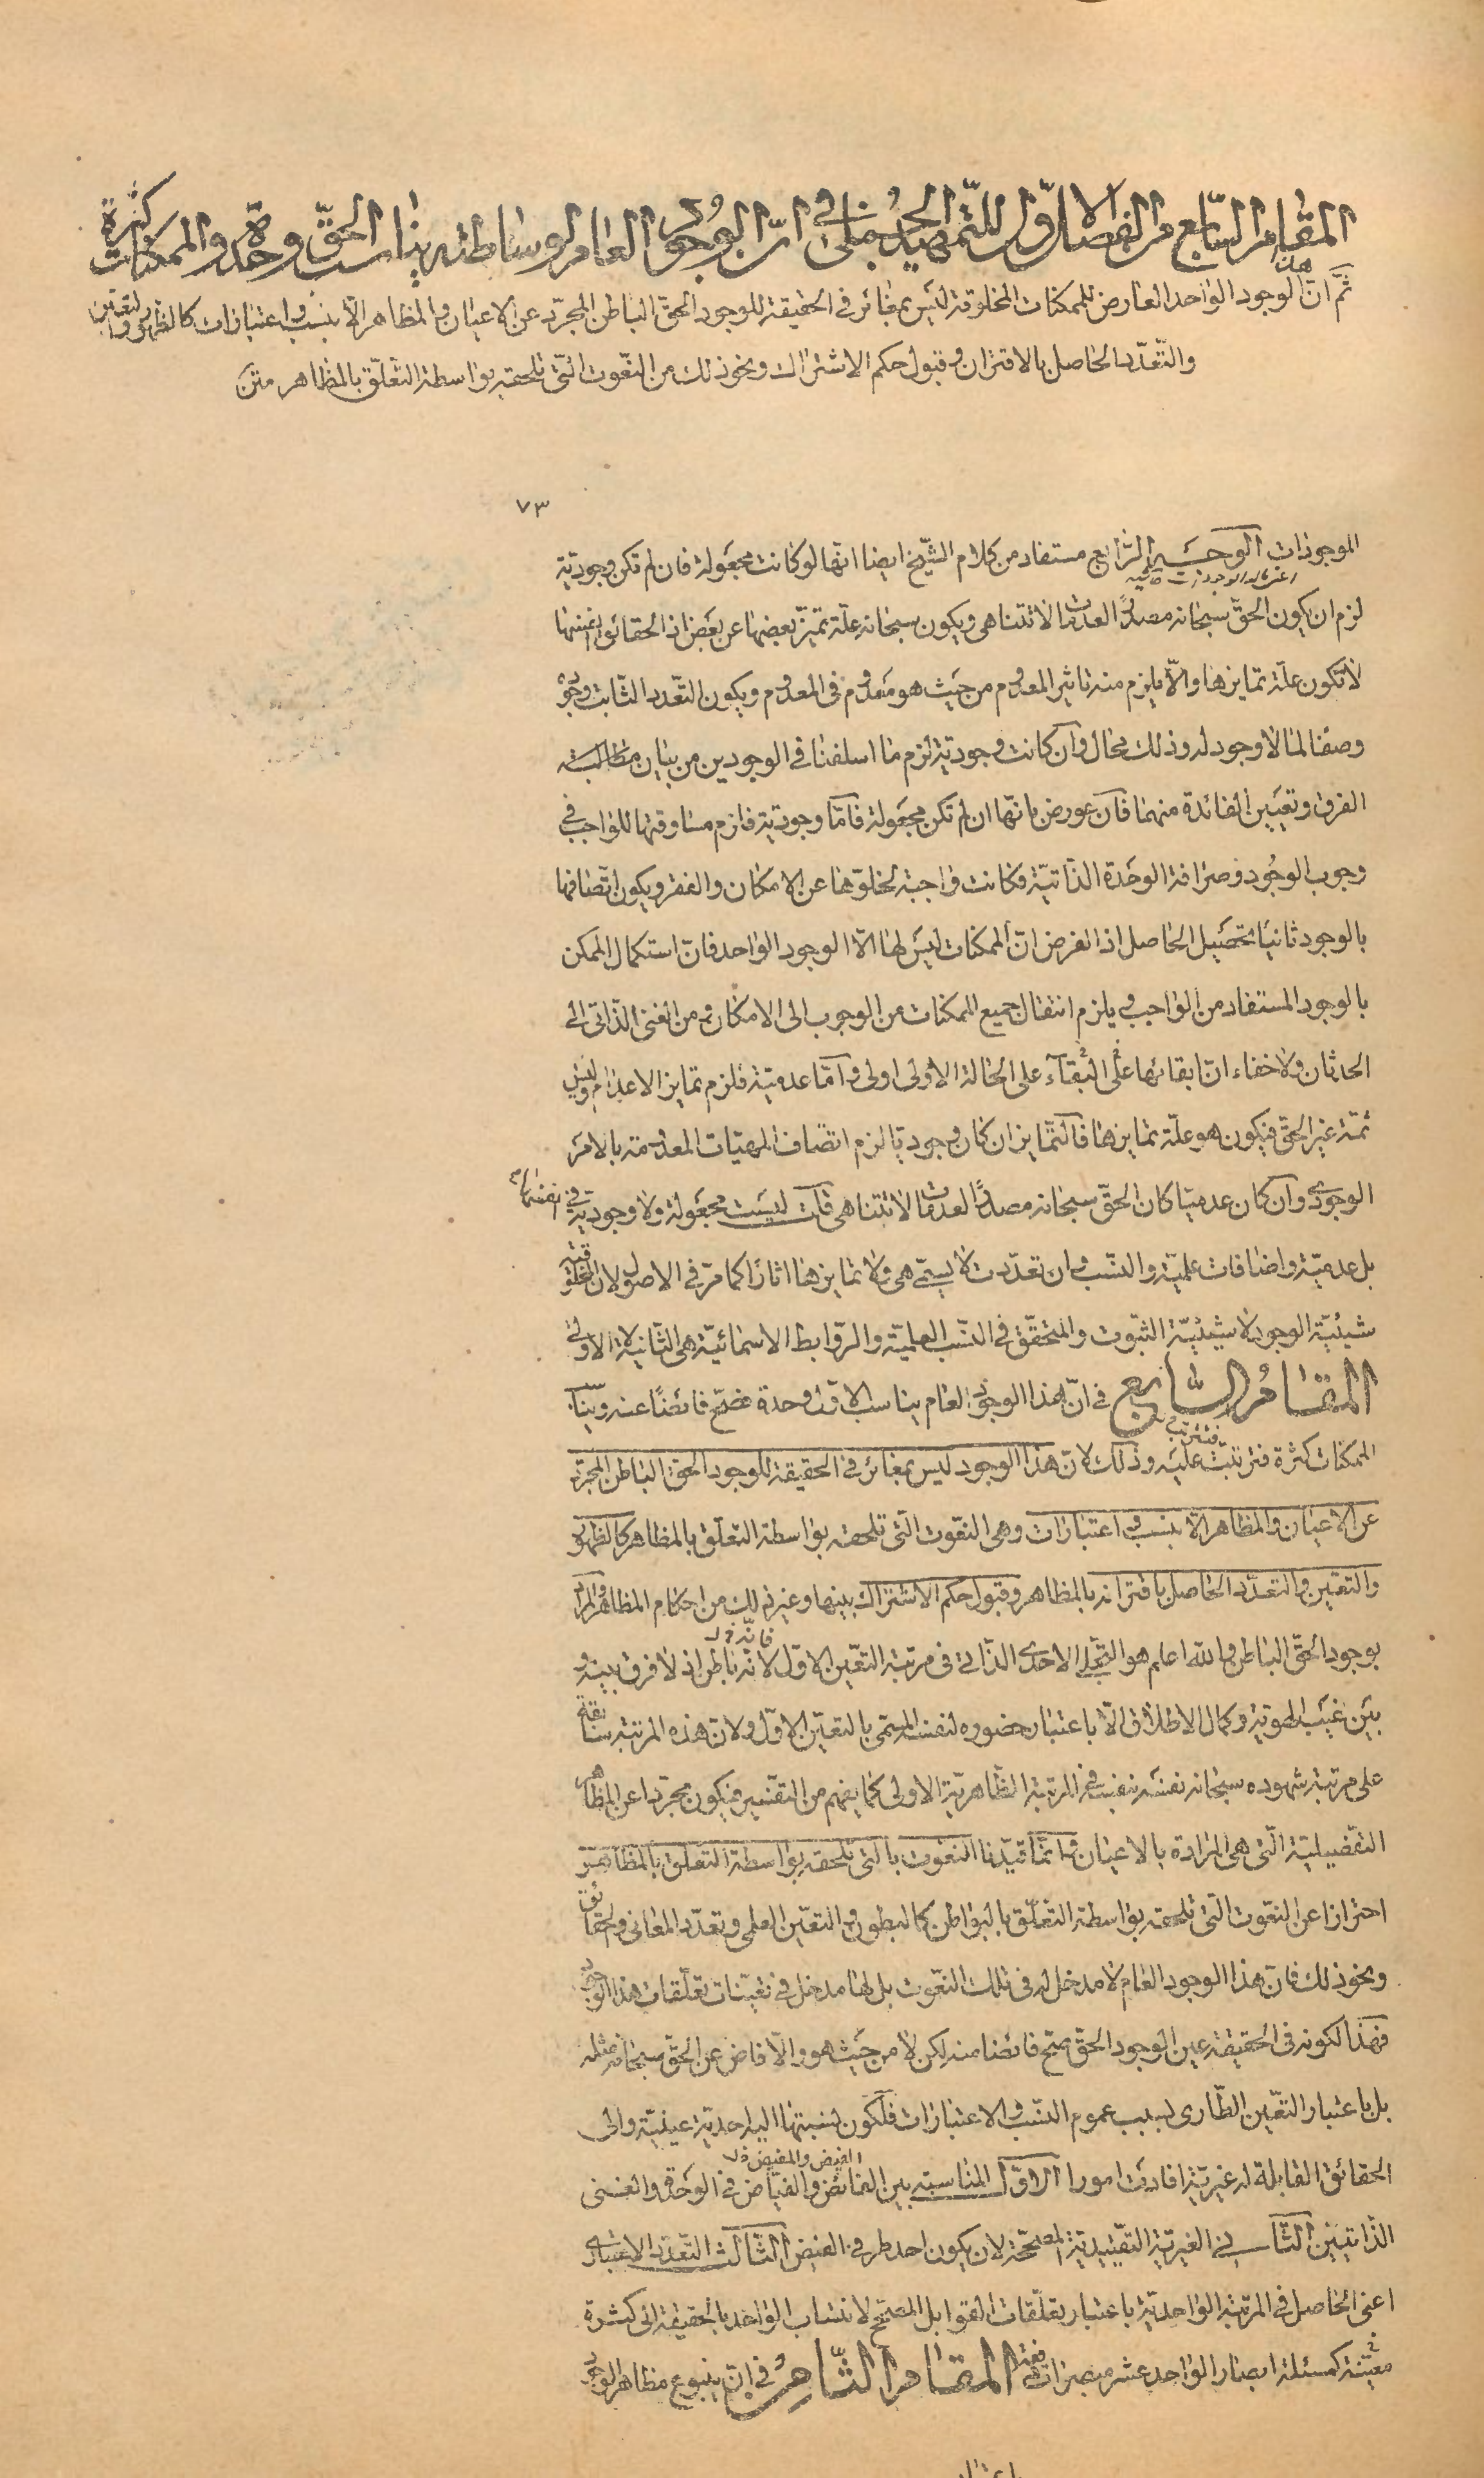 المقام السابع من الفصل الاول للتمهيد الجملى فى ان الوجود العام لوساطته يناسب الحق وحدة والممكنات كثرة
ثم ان هذا الوجود الواحد العارض للممكنات المخلوقة ليس بمغائر فى الحقيقة للوجود الحق الباطن المجرد عن الاعيان والمظاهر الا بنسب واعتبارات كالظهور والتعين
والتعدد الحاصل بالاقتران وقبول حكم الاشتراك ونحو ذلك من النعوت التى تلحقه بواسطة التعلق بالمظاهر متن
٧٣
الموجودات الوجه الرابع مستفاد من كلام الشيخ ايضا انها لو كانت مجعولة فان لم تكن وجودية
لزم ان يكون الحق سبحانه مصدرا لعدمات لا تتناهى ويكون سبحانه علة تميز بعضها عن بعض اذ الحقائق اعينها
لا تكون علة تمايزها والا يلزم منه تاثير المعدوم من حيث هو معدوم فى المعدوم ويكون التعدد الثابت وجوده
وصفا لما لا وجود له وذلك محال وان كانت وجودية لزم ما اسلفنا فى الوجودين من بيان مطالبة
الفرق وتعيين الفائدة منهما فان عورض بانها ان لم تكن مجعولة فاما وجودية فلزم مساوقتها للواجب فى
وجوب الوجود وصرافة الوحدة الذاتية فكانت واجبة لخلوها عن الامكان والفقر ويكون اتصافها
بالوجود ثانيا تحصيل الحاصل اذ الفرض ان الممكنات ليس لها الا الوجود الواحد فان استكمال الممكن
بالوجود المستفاد من الواجب ويلزم انتقال جميع الممكنات من الوجوب الى الامكان ومن الغنى الذاتى الى
الحدثان ولا خفاء ان ابقائها على البقاء على الحالة الاولى اولى واما عدمية فلزم تمايز الاعدام وليس
ثمة غير الحق فيكون هو علة تمايزها فالتمايز ان كان وجوديا لزم اتصاف المهيات المعدومة بالامر
الوجودى وان كان عدميا كان الحق سبحانه مصدرا لعدمات لا تتناهى قلت ليست مجعولة ولا وجودية فى انفسها
بل عدمية واضافات علمية والنسب وان تعددت لا يسمى هى ولا تمايزها اثارا كما مر فى الاصول لان المخلوقية
شيئية الوجود لا شيئية الثبوت والمتحقق فى النسب العلمية والروابط الاسمائية هى الثانية لا الاولى
المقام السابع فى ان هذا الوجود العام يناسب الاول وحدة فصح فائضا عنه ويناسب
الممكنات كثرة فترتبت عليه وذلك لان هذا الوجود ليس بمغائر فى الحقيقة للوجود الحق الباطن المجرد
عن الاعيان والمظاهر الا بنسب واعتبارات وهى النعوت التى تلحقه بواسطة التعلق بالمظاهر كالظهور
والتعين والتعدد الحاصل باقترانه بالمظاهر وقبول حكم الاشتراك بينها وغير ذلك من احكام المظاهر والمراد
بوجود الحق الباطن والله اعلم هو التجلى الاحدى الذاتى فى مرتبة التعين الاول لانه باطن اذ لا فرق بينه و
بين غيب الهوية وكمال الاطلاق الا باعتبار حضوره لنفسه المسمى بالتعين الاول ولان هذه المرتبة سابقة
على مرتبة شهوده سبحانه نفسه بنفسه فى المرتبة الظاهرية الاولى كما يفهم من التفسير فيكون مجردا عن المظاهر
التفصيلية التى هى المرادة بالاعيان وانما قيدنا النعوت بالتى تلحقه بواسطة التعلق بالمظاهر
احترازا عن النعوت التى تلحقه بواسطة التعلق بالبواطن كالبطون والتعين العلمى وتعدد المعانى والحقائق
ونحو ذلك فان هذا الوجود العام لا مدخل له فى تلك النعوت بل لها مدخل فى تعينات تعلقات هذا الوجود
فهذا لكونه فى الحقيقة عين الوجود الحق صح فائضا منه لكن لا من حيث هو والا فاض عن الحق سبحانه مثله
بل باعتبار التعين الطارى بسبب عموم النسب والاعتبارات فلكون نسبتها اليه احدية عينية والى
الحقائق القابلة له غيرية افادت امورا الاول المناسبة بين الفائض والفياض فى الوحدة والغنى
الذاتيين الثانى الغيرية التقييدية المصححة لان يكون احد طرفى الفيض الثالث التعدد الاعتبارى
اعنى الحاصل فى المرتبة الواحدية باعتبار تعلقات القوابل المصحح لانتساب الواحد بالحقيقة الى كثرة
معينة كمسئلة ابصار الواحد عشر مبصرات دفعة المقام الثامن فى ان ينبوع مظاهر الوجود